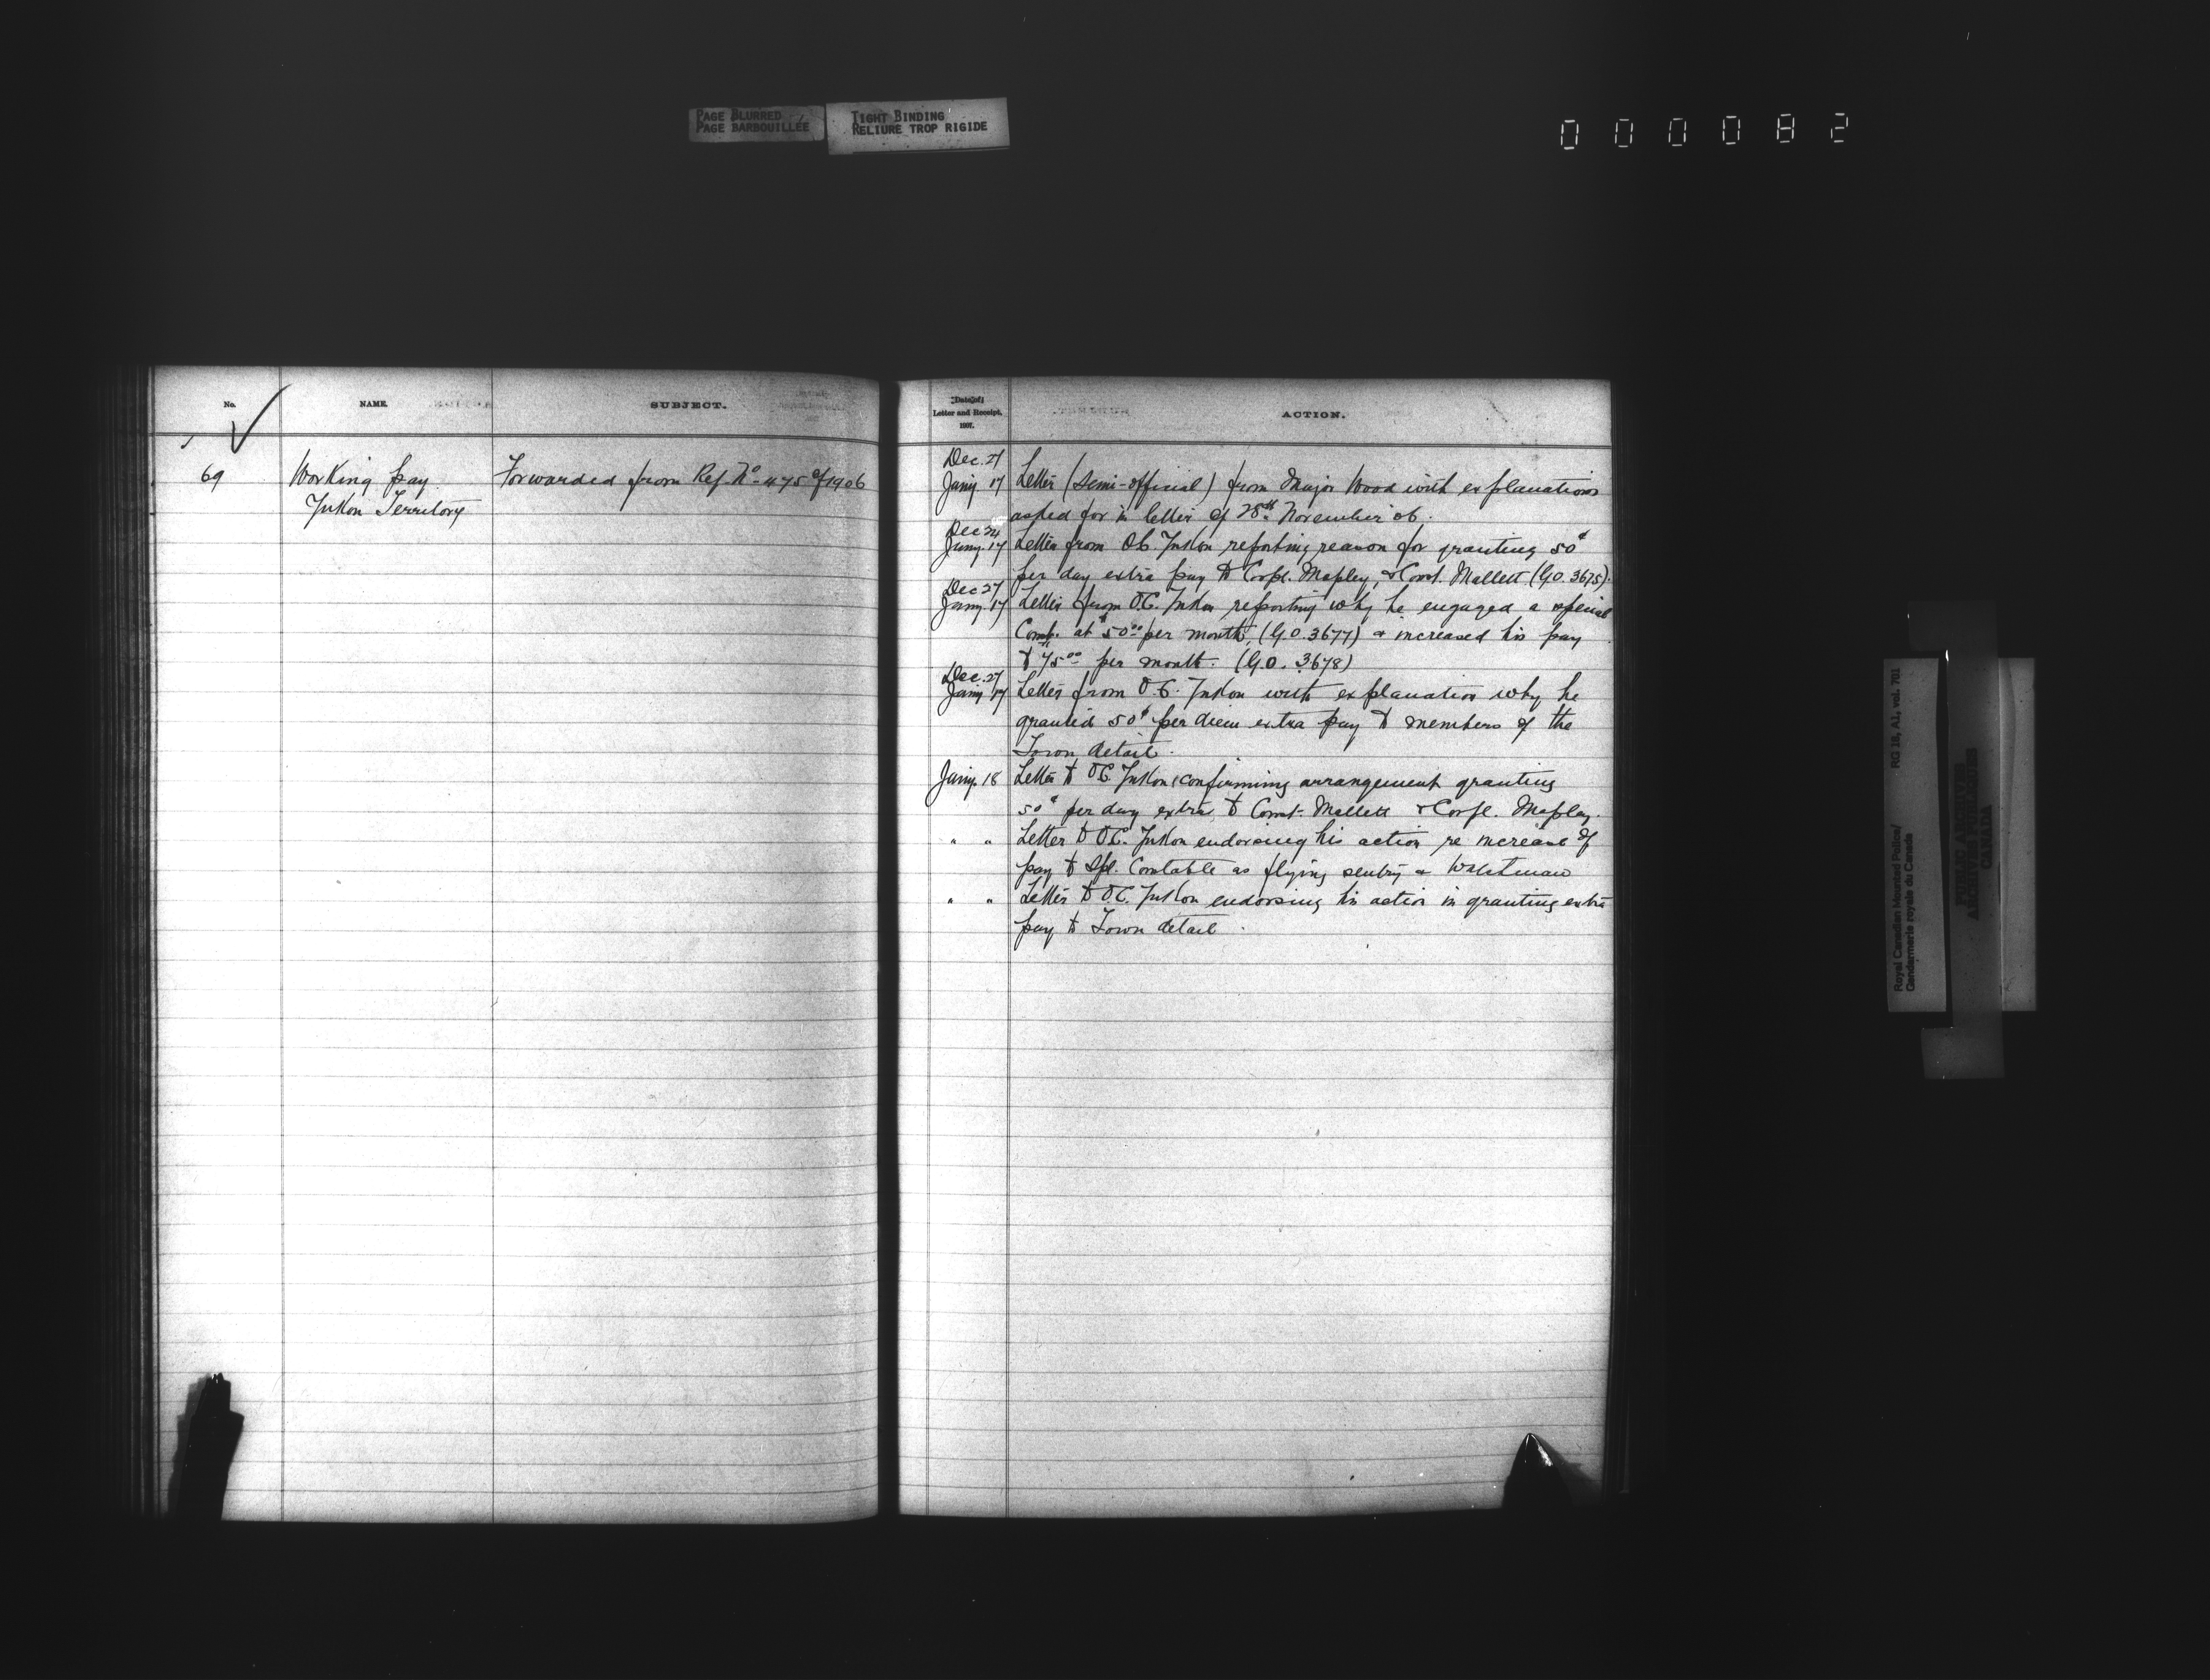 PAGE BLURRED
PAGE BARBOUILLÉE
TIGHT BINDING
RELIURE TROP RIGIDE
000082
No.
NAME.
SUBJECT.
69
Working pay
Forwarded from Ref. No. 475 of 1906
Yukon Territory
Date of
Letter and Receipt.
1907.
ACTION.
Dec. 21
Jany. 17 Letter (Semi-official) from Major Wood with explanations
asked for in letter of 28th November '06.
Dec 24
Jany. 17 Letter from O.C. Yukon reporting reason for granting 50¢
per day extra pay to Corpl. Mapley, & Const. Mallett (G.O. 3675).
Dec 27
Jany. 17 Letter from O.C. Yukon reporting why he engaged a special
Const. at $50.00 per month, (G.O. 3677) & increased his pay
to $75.00 per month. (G.O. 3678)
Dec. 27
Jany 17 Letter from O.C. Yukon with explanation why he
granted 50¢ per diem extra pay to members of the
Town detail.
Jany. 18 Letter to O.C. Yukon confirming arrangement granting
50¢ per day extra to Const. Mallett & Corpl. Mapley.
" " Letter to O.C. Yukon endorsing his action re increase of
pay to Spl. Constable as flying sentry & Watchman
" " Letter to O.C. Yukon endorsing his action in granting extra
pay to Town detail.
Royal Canadian Mounted Police/
Gendarmerie royale du Canada
RG 18, A1, vol. 701
PUBLIC ARCHIVES
ARCHIVES PUBLIQUES
CANADA